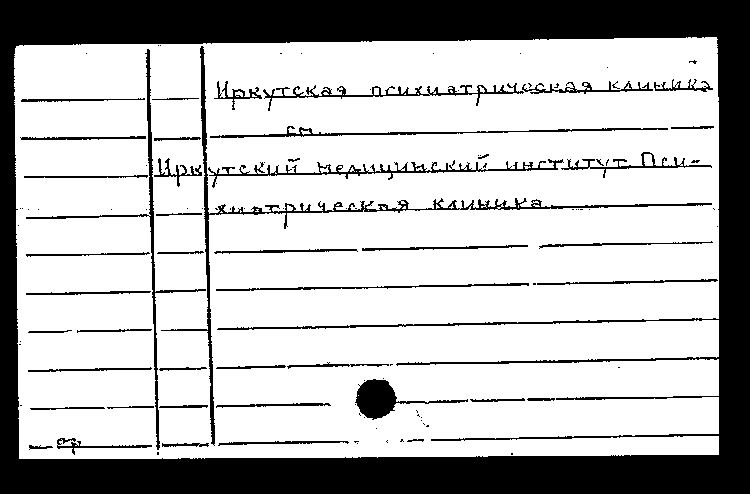 Иркутская психиатрическая клиника
см.
Иркутский медицинский институт Пси-
хиатрическая клиника